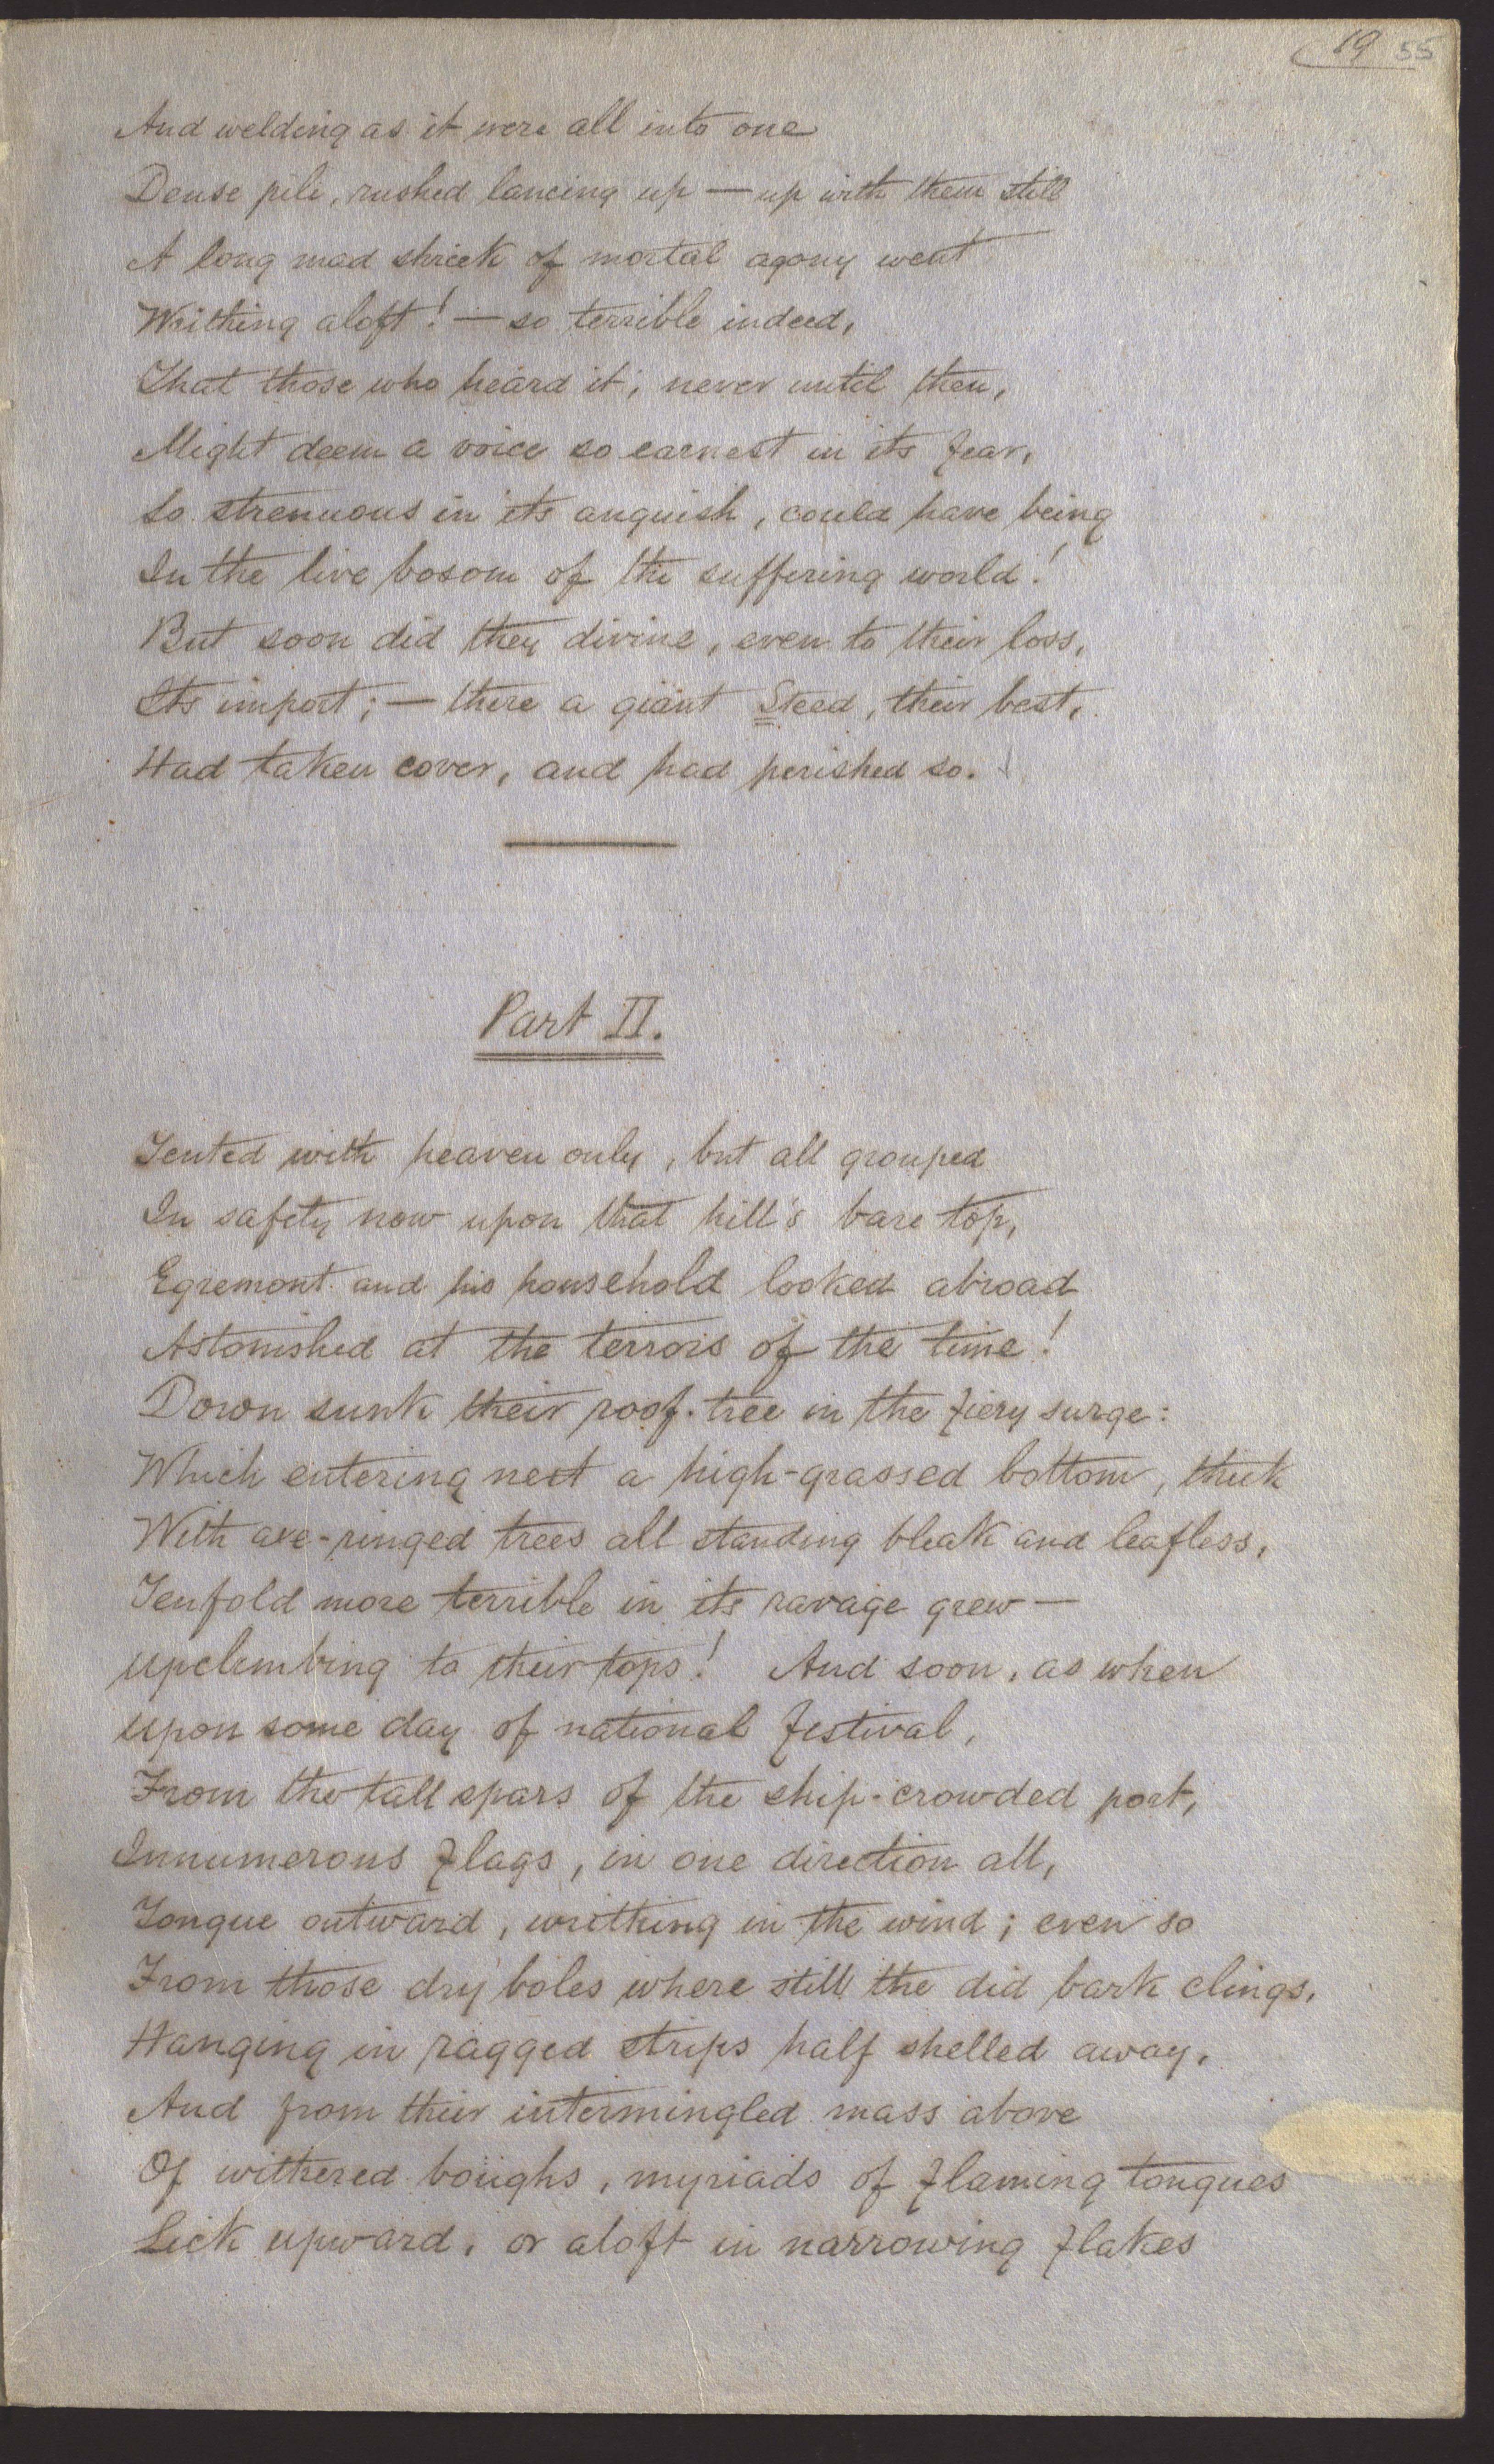 19 55
And welding as it were all into one
Dense pile, rushed lancing up — up with them still
A long mad shriek of mortal agony went
Writhing aloft! — so terrible indeed,
That those who heard it, never until then,
Might deem a voice so earnest in its fear,
So strenuous in its anguish, could have being
In the live bosom of the suffering world!
But soon did they divine, even to their loss,
Its import; — there a giant Steed, their best,
Had taken cover, and had perished so.
Part II.
Tented with heaven only, but all grouped
In safety now upon that hill's bare top,
Egremont and his household looked abroad
Astonished at the terrors of the time!
Down sunk their roof-tree in the fiery surge:
Which entering next a high-grassed bottom, thick
With axe-ringed trees all standing bleak and leafless,
Tenfold more terrible in its ravage grew —
Upclimbing to their tops! And soon, as when
Upon some day of national festival,
From the tall spars of the ship-crowded port,
Innumerous flags, in one direction all,
Tongue outward, writhing in the wind; even so
From those dry boles where still the did bark clings,
Hanging in ragged strips half shelled away,
And from their intermingled mass above
Of withered boughs, myriads of flaming tongues
Lick upward, or aloft in narrowing flakes